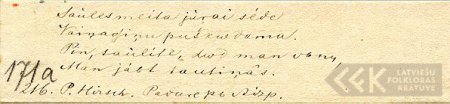 Saules meita jūrai sēde
Vaiņagiņu puškodama.
Pin, saulīte, dod man vienu,
Man jāet tautiņās.
171a
216. P. Hirsch.
LATVIEŠU
FOLKLORAS
KRĀTUVE